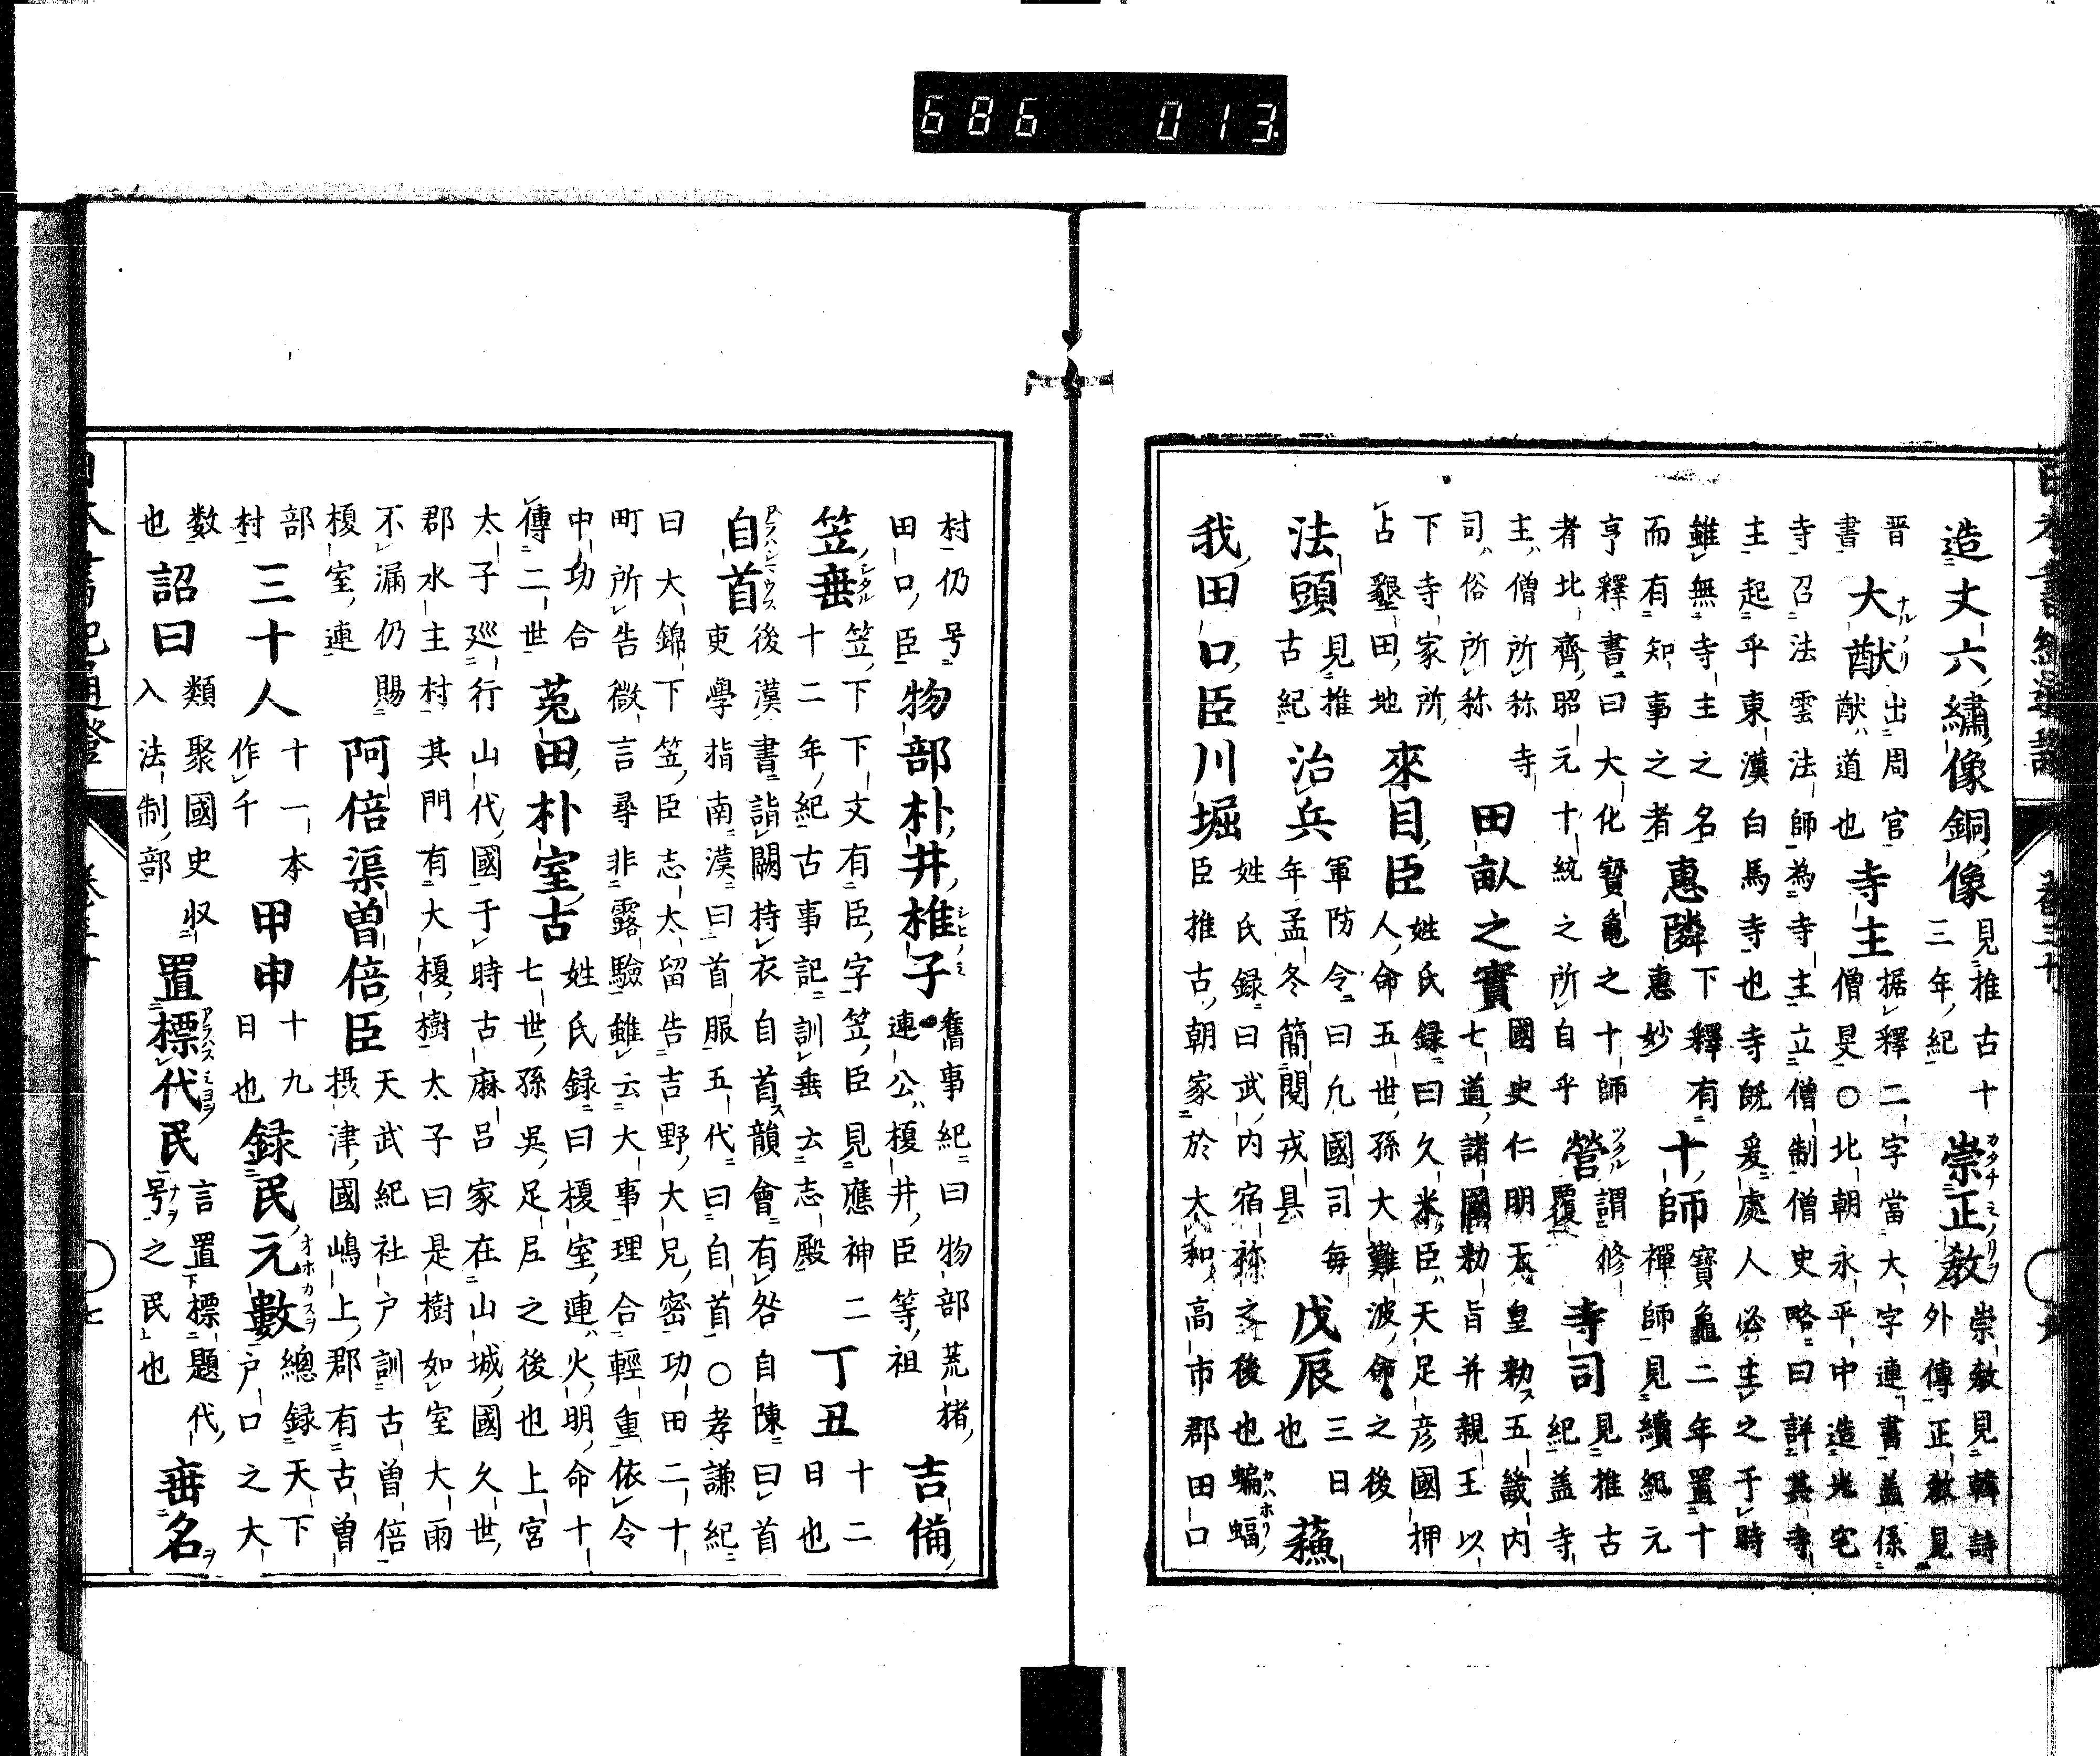 造丈六繡像銅像見推古十三年紀崇正教崇教見韓詩外傳正教見
晋書大猷出周官猷道也寺主据釋二字當大字連書盖係僧旻○北朝永平中造光宅
寺召法雲法師為寺主立僧制僧史略曰詳其寺主起乎東漢白馬寺也寺既爰處人必主之于時
雖無寺主之名而有知事之者惠隣下釋有惠妙十師寶龜二年置十禪師見續紀元
亨釋書曰大化寶龜之十師者北齊昭元十統之所自乎營謂修覆寺司見推古紀盖寺
主僧所称寺司俗所称田畝之實國史仁明天皇勅五畿内七道諸國勅旨并親王以
下寺家所占墾田地來目臣姓氏録曰久米臣天足彦國押人命五世孫大難波命之後
法頭見推古紀治兵軍防令曰凡國司毎年孟冬簡閲戎具戊辰三日也蘓
我田口臣川堀姓氏録曰武内宿祢之後也蝙蝠臣推古朝家於大和高市郡田口
村仍号田口臣物部朴井椎子舊事紀曰物部荒猪連公榎井臣等祖吉備
笠垂笠下下文有臣字笠臣見應神二十二年紀古事記訓垂云志殿丁丑十二日也
自首後漢書詣闕持衣自首韻會有咎自陳曰首吏學指南漢曰首服五代曰自首○孝謙紀
曰大錦下笠臣志太留告吉野大兄密功田二十町所告微言尋非露驗雖云大事理合輕重依令
中功合傳二世菟田朴室古姓氏録曰榎室連火明命十七世孫呉足尼之後也上宮
太子廵行山代國于時古麻呂家在山城國久世郡水主村其門有大榎樹太子曰是樹如室大雨
不漏仍賜榎室連阿倍渠曽倍臣天武紀社戸訓古曽倍摂津國嶋上郡有古曽
部村三十人十一本作千甲申十九日也録民元數總録天下戸口之大
数也詔曰類聚國史収入法制部置標代民言置標題代号之民也垂名
686 013